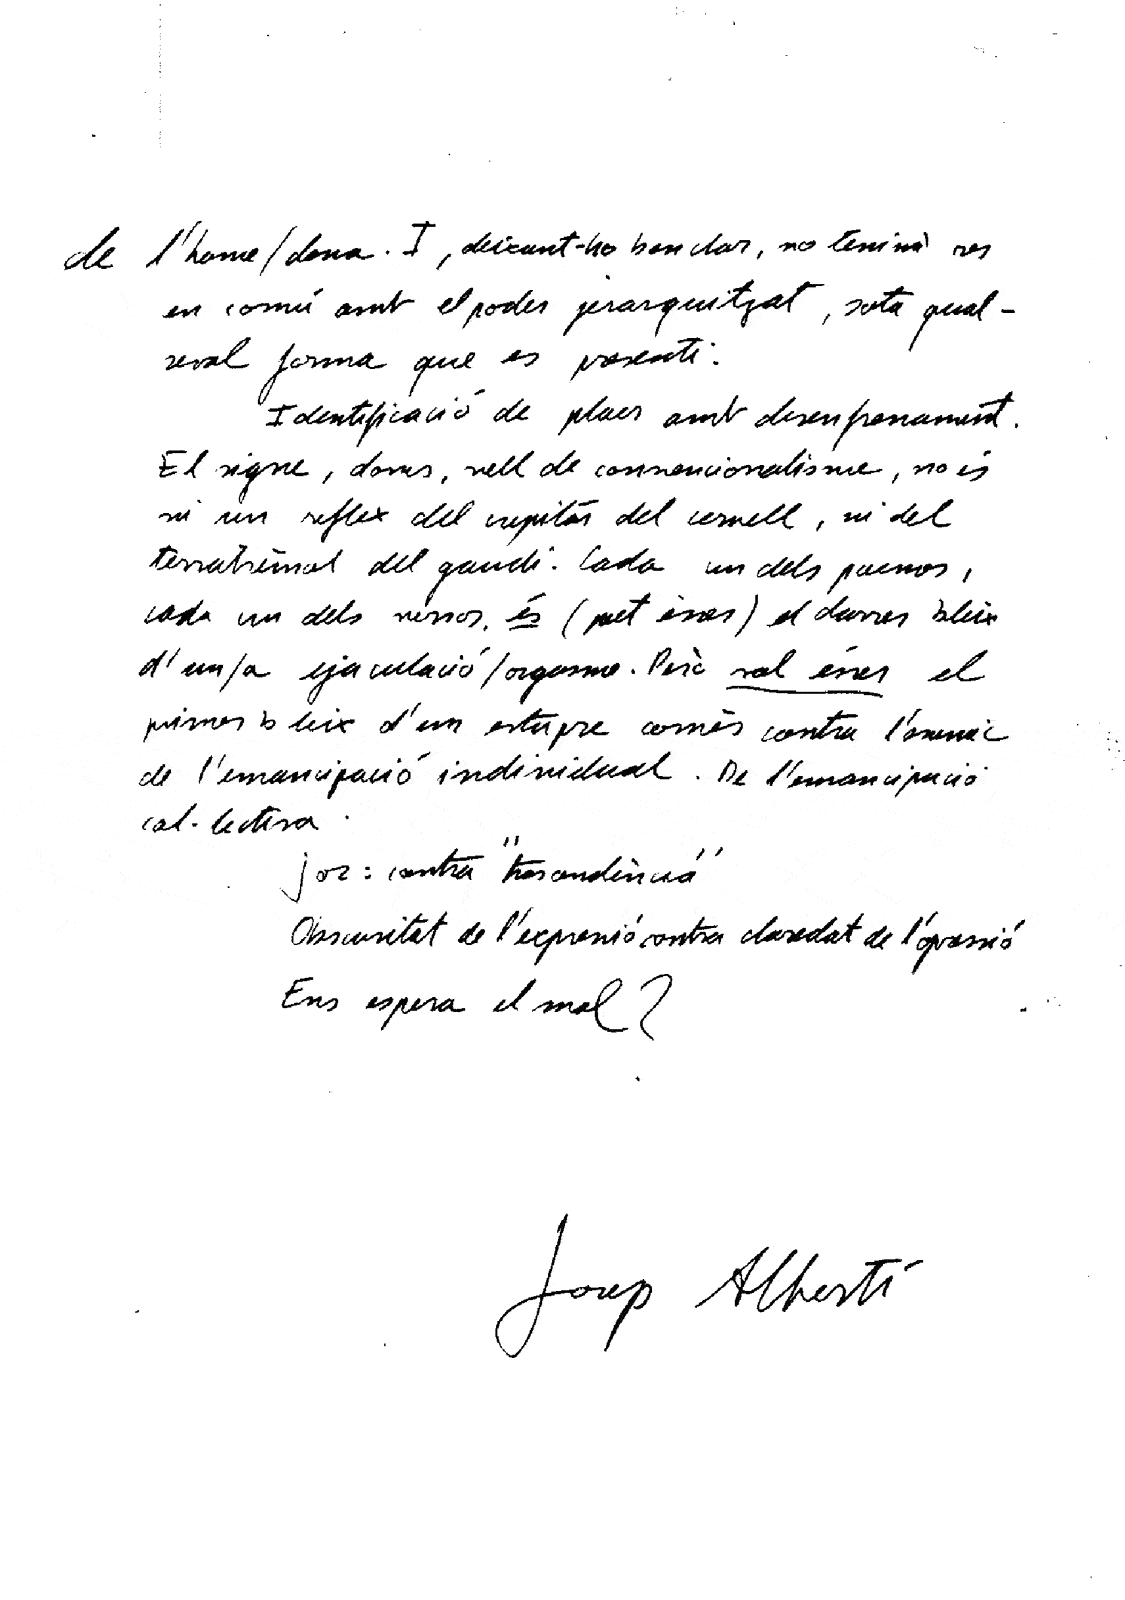 de l'home/dona. I, deixant-ho ben clar, no tenim res
en comú amb el poder jerarquitzat, sota qual-
sevol forma que es presenti.
Identificació de plaer amb desenfrenament.
El signe, doncs, vell de convencionalisme, no és
ni un reflex del crepitar del cervell, ni del
terratrèmol del gaudi. Cada un dels poemes,
cada un dels versos, és (pot ésser) el darrer bleix
d'un/a ejaculació/orgasme. Però vol ésser el
primer bleix d'un estupre comès contra l'enemic
de l'emancipació individual. De l'emancipació
col·lectiva.
joc: contra "trascendència"
Obscuritat de l'expressió contra claredat de l'opressió
Ens espera el mal?
Josep Albertí